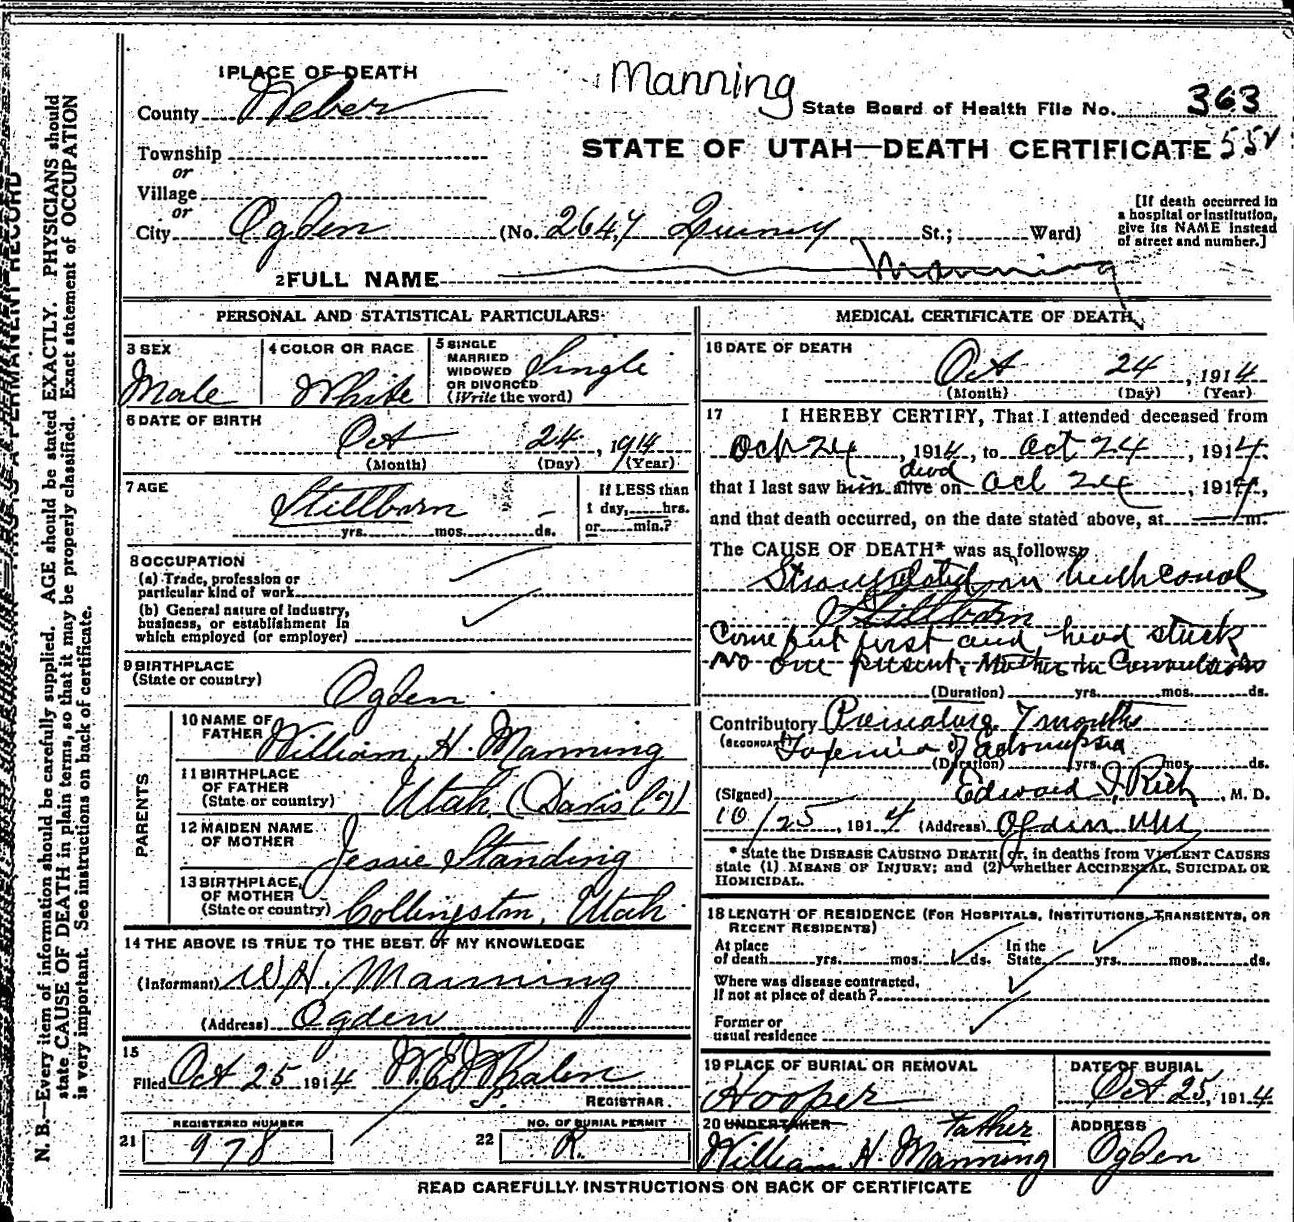 Manning
1 PLACE OF DEATH
County Weber
State Board of Health File No. 363
STATE OF UTAH—DEATH CERTIFICATE 552
Township
or
Village
or
City Ogden (No. 2647 Quincy St.; Ward)
[If death occurred in a hospital or institution, give its NAME instead of street and number.]
2 FULL NAME Manning
PERSONAL AND STATISTICAL PARTICULARS
3 SEX
Male
4 COLOR OR RACE
White
5 SINGLE
MARRIED
WIDOWED
OR DIVORCED
(Write the word)
Single
6 DATE OF BIRTH
Oct 24, 1914
(Month) (Day) (Year)
7 AGE
Stillborn
yrs. mos. ds.
If LESS than
1 day, hrs.
or min.?
8 OCCUPATION
(a) Trade, profession or
particular kind of work
(b) General nature of industry,
business, or establishment in
which employed (or employer)
9 BIRTHPLACE
(State or country)
Ogden
PARENTS
10 NAME OF
FATHER
William H. Manning
11 BIRTHPLACE
OF FATHER
(State or country)
Utah (Davis Co)
12 MAIDEN NAME
OF MOTHER
Jessie Standing
13 BIRTHPLACE
OF MOTHER
(State or country)
Collingston, Utah
14 THE ABOVE IS TRUE TO THE BEST OF MY KNOWLEDGE
(Informant) W H. Manning
(Address) Ogden
15
Filed Oct 25 1914
REGISTRAR
REGISTERED NUMBER
21 978
NO. OF BURIAL PERMIT
22 R.
MEDICAL CERTIFICATE OF DEATH
16 DATE OF DEATH
Oct 24, 1914
(Month) (Day) (Year)
17 I HEREBY CERTIFY, That I attended deceased from
Oct 24, 1914, to Oct 24, 1914.
dead
that I last saw him alive on Oct 24, 1914,
and that death occurred, on the date stated above, at m.
The CAUSE OF DEATH* was as follows:
Strangulated in birth canal
Stillborn
Come but first and head stuck
No one present. Mother in Convulsions
(Duration) yrs. mos. ds.
Contributory Premature 7 months
(SECONDARY) Toxemia of
(Duration) yrs. mos. ds.
(Signed) Edward I. Rich, M. D.
10/25, 1914 (Address) Ogden Utah
* State the DISEASE CAUSING DEATH or, in deaths from VIOLENT CAUSES
state (1) MEANS OF INJURY; and (2) whether ACCIDENTAL, SUICIDAL OR
HOMICIDAL.
18 LENGTH OF RESIDENCE (FOR HOSPITALS, INSTITUTIONS, TRANSIENTS, OR
RECENT RESIDENTS)
At place
of death yrs. mos. ds.
In the
State yrs. mos. ds.
Where was disease contracted,
If not at place of death?
Former or
usual residence
19 PLACE OF BURIAL OR REMOVAL
Hooper
DATE OF BURIAL
Oct 25, 1914
20 UNDERTAKER Father
William H Manning
ADDRESS
Ogden
READ CAREFULLY INSTRUCTIONS ON BACK OF CERTIFICATE
PERMANENT RECORD
N. B.—Every item of information should be carefully supplied. AGE should be stated EXACTLY. PHYSICIANS should
state CAUSE OF DEATH in plain terms, so that it may be properly classified. Exact statement of OCCUPATION
is very important. See instructions on back of certificate.